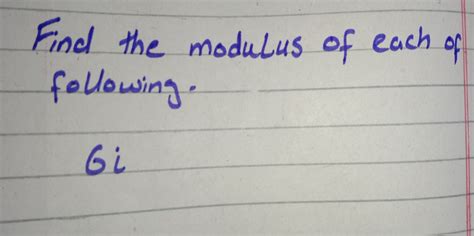 Find the modulus of each of
following.
6i